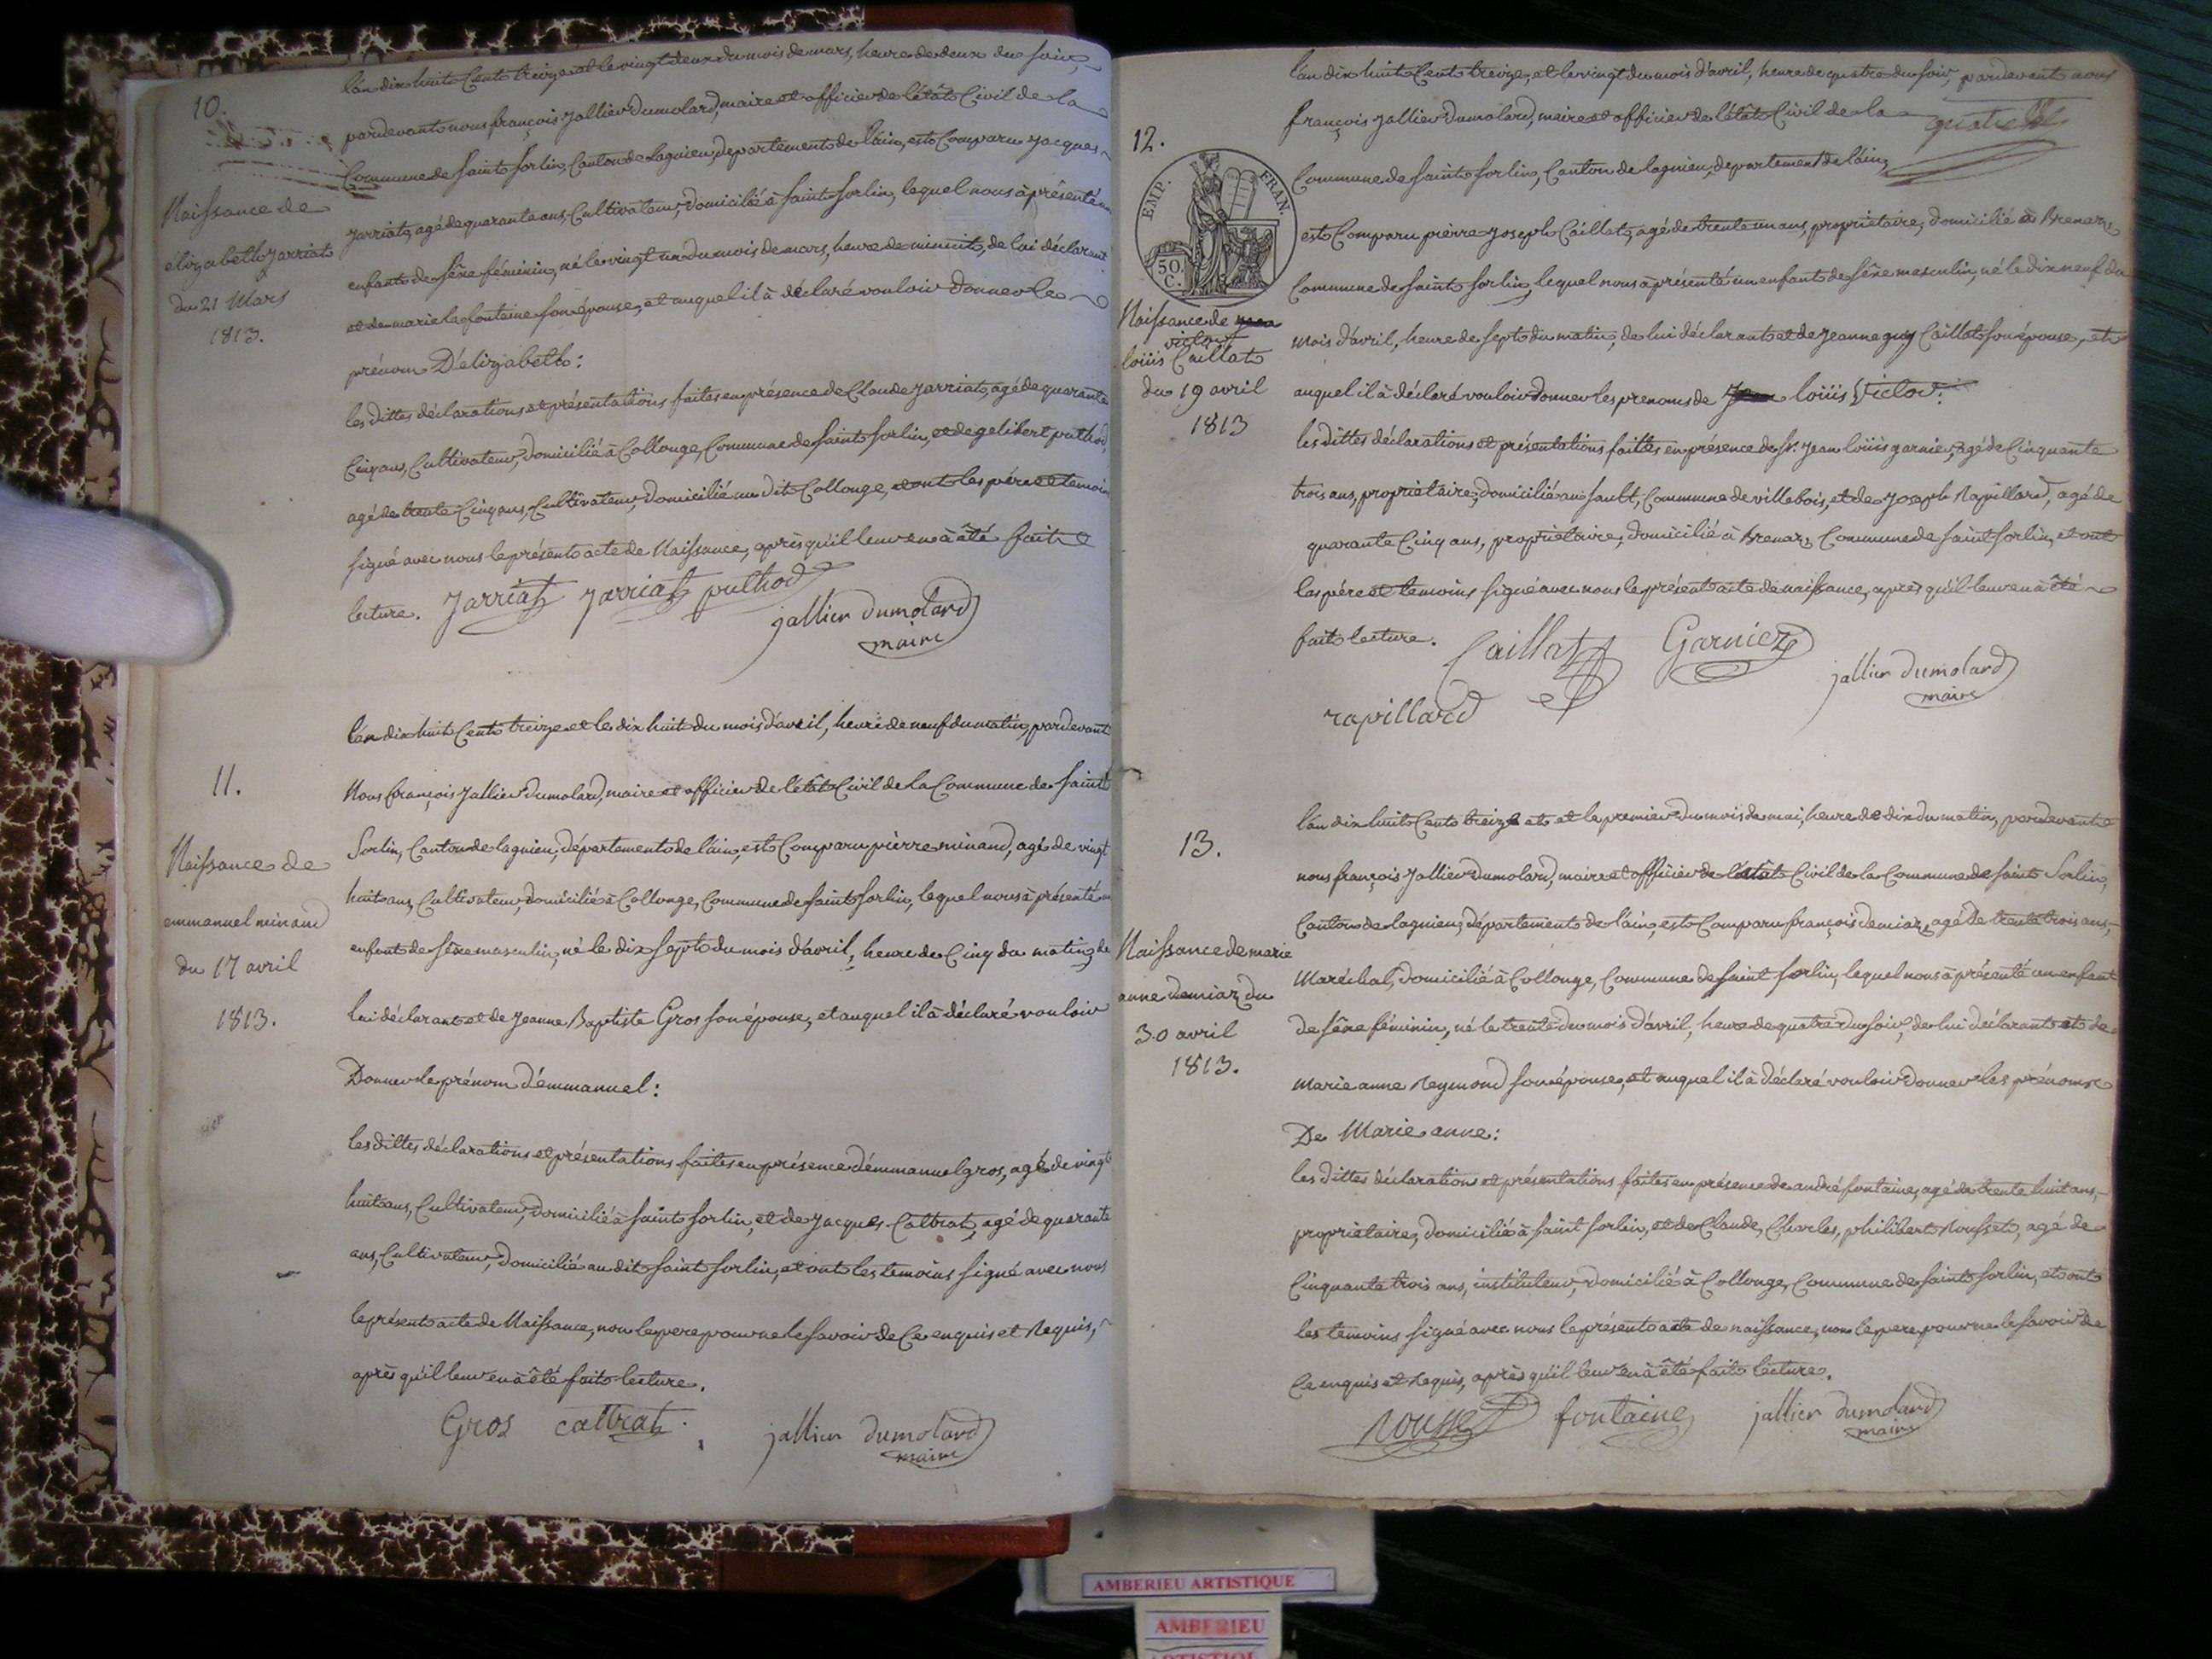 10.
Naissance de
élizabeth Jarriat
du 21 Mars
1813.
l'an dix huit Cent treize et le vingt deux du mois de mars, heure de deux du soir,
pardevant nous françois Jallier Dumolard, maire et officier de l'état Civil de la
Commune de Saint Sorlin, Canton de lagnieu, département de l'ain, est Comparu Jacques
Jarriat, agé de quarante ans, Cultivateur, domicilié à Saint Sorlin, lequel nous à présenté un
enfant de sêxe féminin, né le vingt un du mois de mars, heure de minuit, de lui déclarant
et de marie lafontaine son épouse, et auquel il à déclaré vouloir donner le
prénom D'elizabeth:
les dittes déclarations et présentations faites en présence de Claude Jarriat, agé de quarante
Cinq ans, Cultivateur, domicilié à Collonge, Commune de Saint Sorlin, et de gelibert puthod,
agé de trente Cinq ans, Cultivateur, domicilié au dit Collonge, et ont les pére et temoin
signé avec nous le présent acte de Naissance, après qu'il leur en à été fait
lecture. Jarriat Jarriat puthod
jallier dumolard
maire
11.
Naissance de
emmanuel minand
du 17 avril
1813.
l'an dix huit Cent treize et le dix huit du mois d'avril, heure de neuf du matin, pardevant
Nous françois Jallier Dumolard, maire et officier de l'état Civil de la Commune de Saint
Sorlin, Canton de lagnieu, département de l'ain, est Comparu pierre minand, agé de vingt
huit ans, Cultivateur, domicilié à Collonge, Commune de Saint Sorlin, lequel nous à présenté un
enfant de sêxe masculin, né le dix sept du mois d'avril, heure de Cinq du matin, de
lui déclarant et de Jeanne Baptiste Gros son épouse, et auquel il à déclaré vouloir
Donner le prénom d'emmanuel:
les dittes déclarations et présentations faites en présence d'emmanuel gros, agé de vingt
huit ans, Cultivateur, domicilié à Saint Sorlin, et de Jacques Cattrat, agé de quarante
ans, Cultivateur, domicilié au dit Saint Sorlin, et ont les temoins signé avec nous
le présent acte de Naissance, non le pere pour ne le savoir de Ce enquis et Requis,
après qu'il leur en à été fait lecture.
Gros cattrat
jallier dumolard
maire
12.
EMP. FRAN.
50.
C.
Naissance de
victor
loüis Caillat
du 19 avril
1813
l'an dix huit Cent treize, et le vingt du mois d'avril, heure de quatre du soir, pardevant nous
françois Jallier Dumolard, maire et officier de l'état Civil de la
Commune de Saint Sorlin, Canton de lagnieu, département de l'ain,
est Comparu pierre Joseph Caillat, agé de trente un ans, propriétaire, domicilié à Brenaz,
Commune de Saint Sorlin, lequel nous à présenté un enfant de sêxe masculin, né le dix neuf du
mois d'avril, heure de sept du matin, de lui déclarant et de Jeanne guy Caillat son épouse, et
auquel il à déclaré vouloir donner les prenoms de loüis Victor:
les dittes déclarations et présentations faittes en présence de Sr. Jean loüis garnier, agé de Cinquante
trois ans, propriétaire, domicilié au Sault, Commune de villebois, et de Joseph Rapillard, agé de
quarante Cinq ans, propriétaire, domicilié à Brenaz, Commune de Saint Sorlin, et ont
les pére et temoins signé avec nous le présent acte de naissance, après qu'il leur en à été
fait lecture. Caillat Garnier
jallier dumolard
maire
rapillard
13.
Naissance de marie
anne demiaz du
30 avril
1813.
l'an dix huit Cent treize et et le premier du mois de mai, heure de dix du matin, pardevant
nous françois Jallier Dumolard, maire et officier de l'état Civil de la Commune de Saint Sorlin,
Canton de lagnieu, département de l'ain, est Comparu françois demiaz, agé de trente trois ans,
Maréchal, domicilié à Collonge, Commune de Saint Sorlin, lequel nous à présenté un enfant
de sêxe féminin, né le trente du mois d'avril, heure de quatre du soir, de lui déclarant et de
marie anne Reymond son épouse, et auquel il à déclaré vouloir donner les prénoms
De Marie anne:
les dittes déclarations et présentations faites en présence de andré fontaine, agé de trente huit ans,
propriétaire, domicilié à Saint Sorlin, et de Claude, Charles, philibert Rousset, agé de
Cinquante trois ans, instituteur, domicilié à Collonge, Commune de Saint Sorlin, et ont
les temoins signé avec nous le présent acte de naissance, non le pere, pour ne le savoir de
Ce enquis et Requis, après qu'il leur en à été fait lecture.
Rousset fontaine jallier dumolard
maire
AMBERIEU ARTISTIQUE
AMBERIEU
ARTISTIQUE